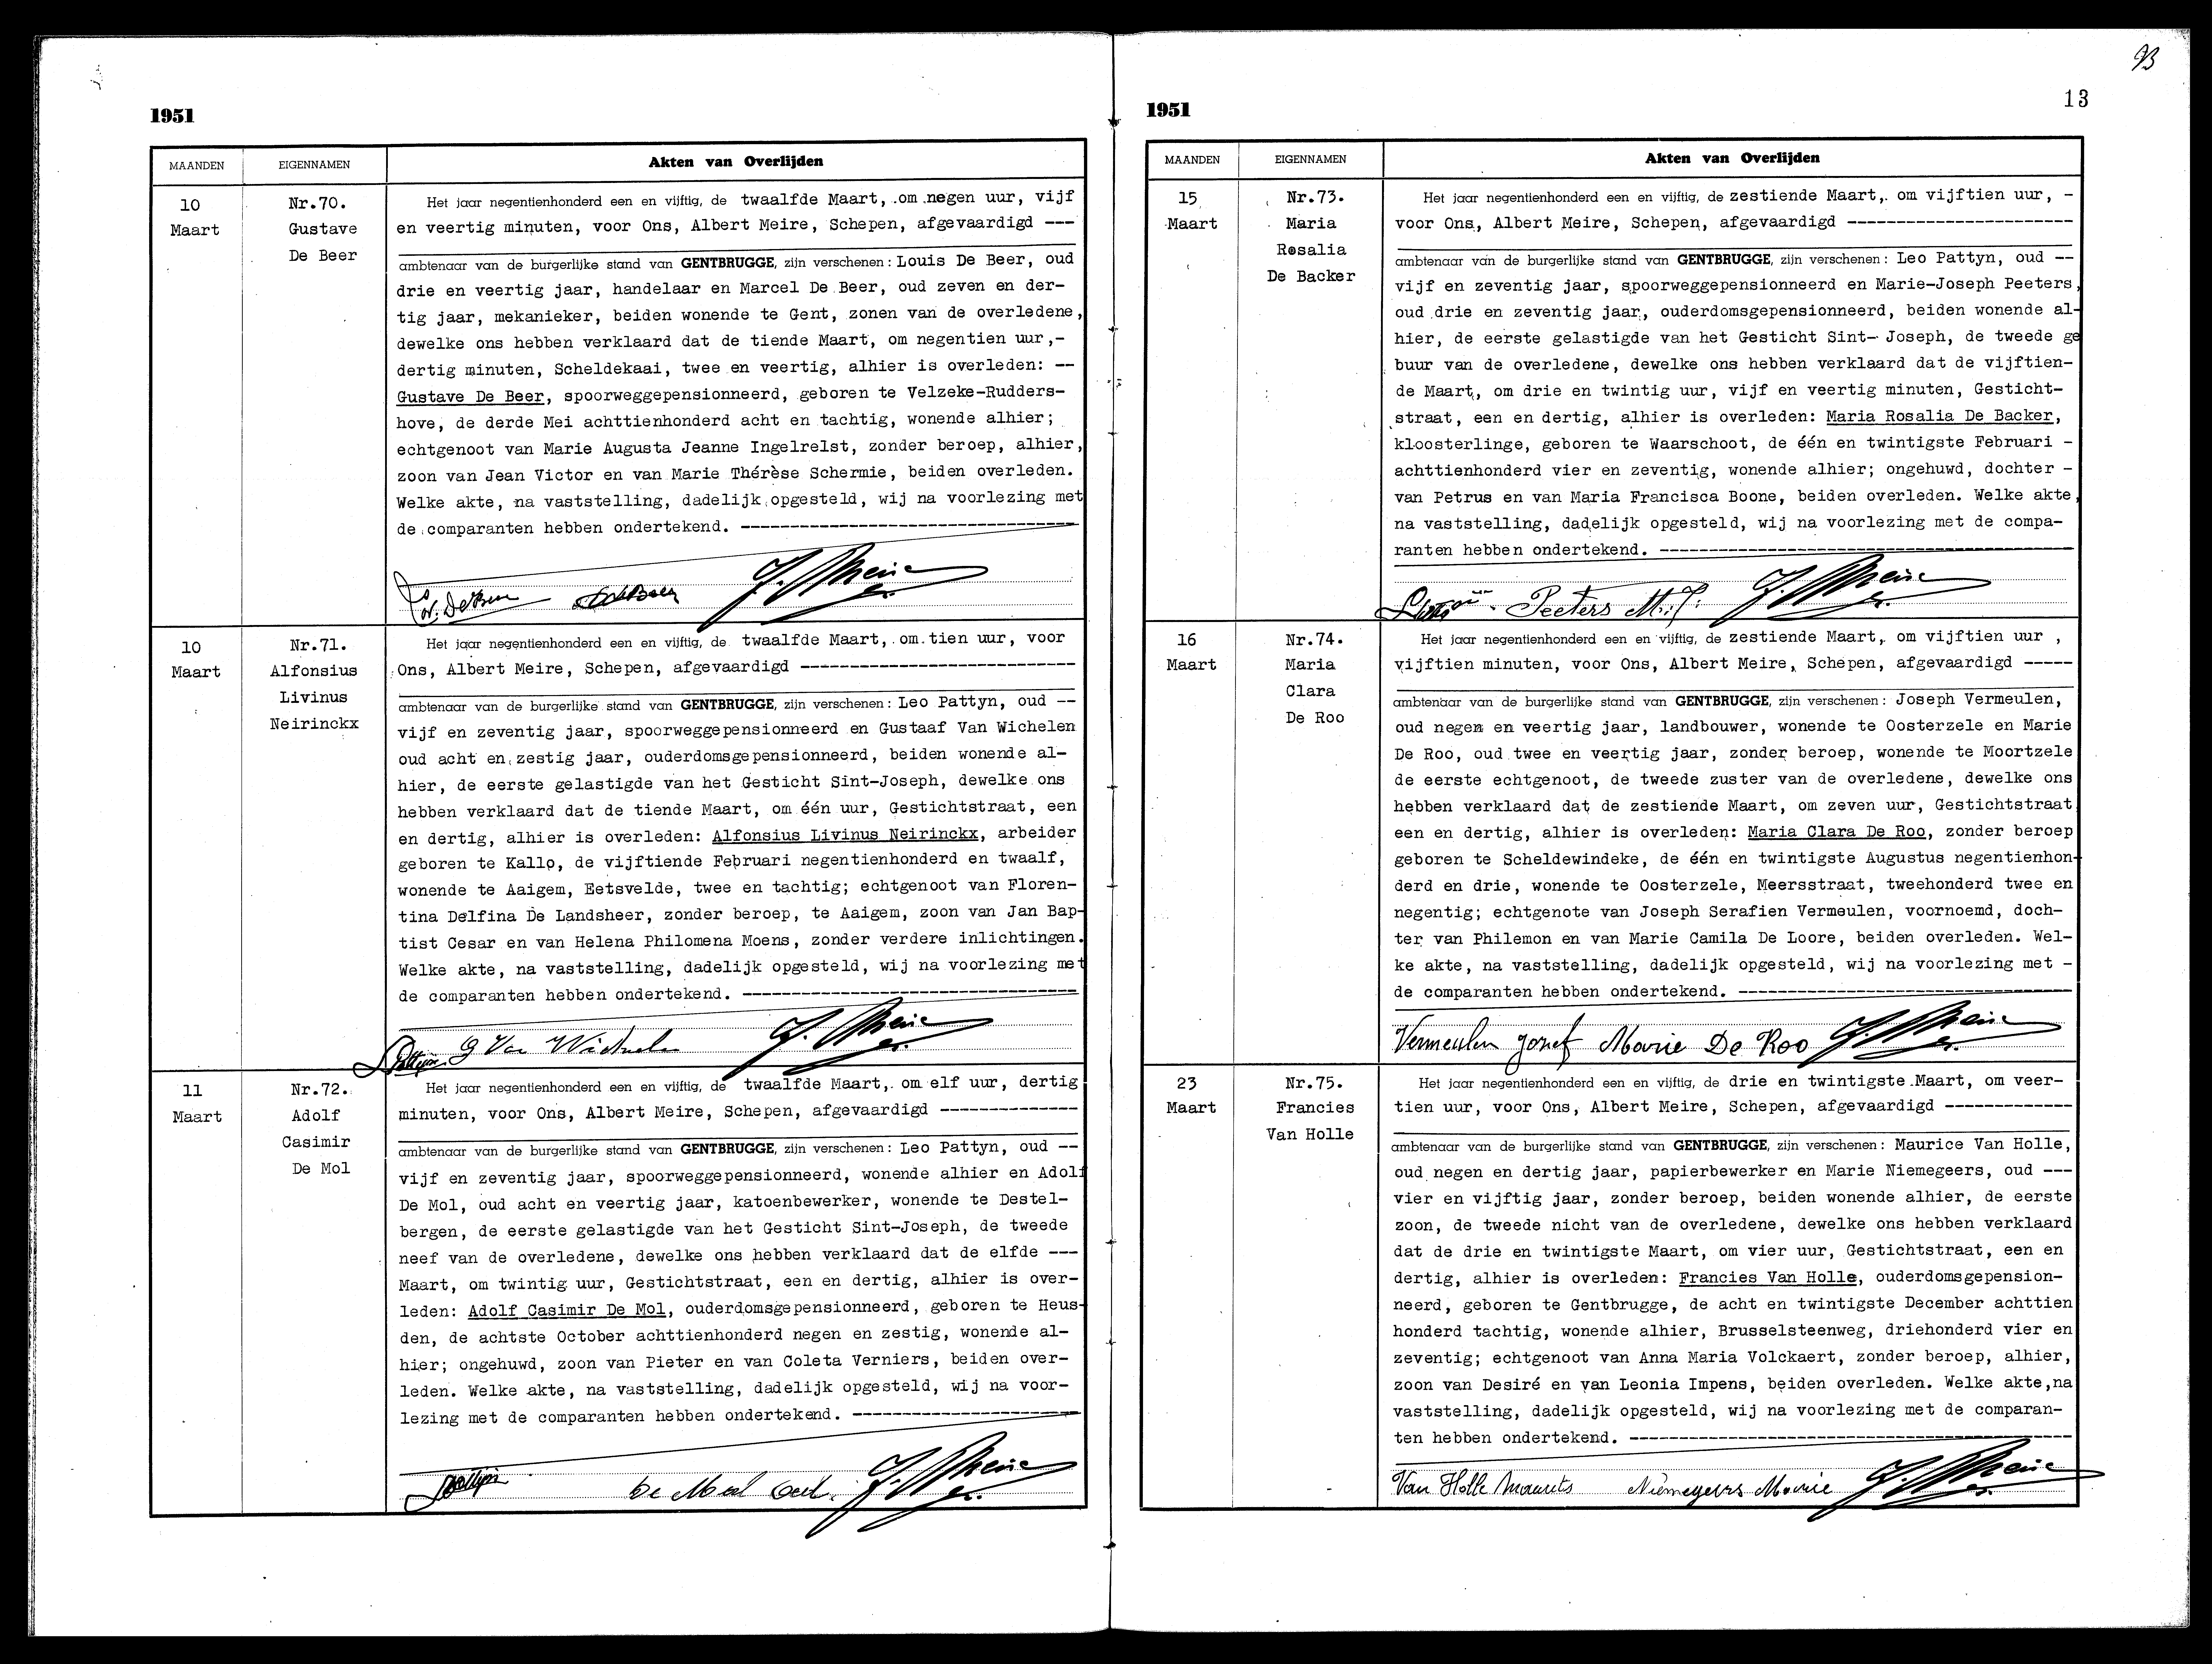 1951
MAANDEN EIGENNAMEN Akten van Overlijden
10
Maart
Nr.70.
Gustave
De Beer
Het jaar negentienhonderd een en vijftig, de twaalfde Maart, om negen uur, vijf
en veertig minuten, voor Ons, Albert Meire, Schepen, afgevaardigd ---
ambtenaar van de burgerlijke stand van GENTBRUGGE, zijn verschenen: Louis De Beer, oud
drie en veertig jaar, handelaar en Marcel De Beer, oud zeven en der-
tig jaar, mekanieker, beiden wonende te Gent, zonen van de overledene,
dewelke ons hebben verklaard dat de tiende Maart, om negentien uur,-
dertig minuten, Scheldekaai, twee en veertig, alhier is overleden: --
Gustave De Beer, spoorweggepensionneerd, geboren te Velzeke-Rudders-
hove, de derde Mei achttienhonderd acht en tachtig, wonende alhier;
echtgenoot van Marie Augusta Jeanne Ingelrelst, zonder beroep, alhier,
zoon van Jean Victor en van Marie Thérèse Schermie, beiden overleden.
Welke akte, na vaststelling, dadelijk opgesteld, wij na voorlezing met
de comparanten hebben ondertekend. ----------------------------------
10
Maart
Nr.71.
Alfonsius
Livinus
Neirinckx
Het jaar negentienhonderd een en vijftig, de twaalfde Maart, om tien uur, voor
Ons, Albert Meire, Schepen, afgevaardigd ----------------------------
ambtenaar van de burgerlijke stand van GENTBRUGGE, zijn verschenen: Leo Pattyn, oud --
vijf en zeventig jaar, spoorweggepensionneerd en Gustaaf Van Wichelen
oud acht en zestig jaar, ouderdomsgepensionneerd, beiden wonende al-
hier, de eerste gelastigde van het Gesticht Sint-Joseph, dewelke ons
hebben verklaard dat de tiende Maart, om één uur, Gestichtstraat, een
en dertig, alhier is overleden: Alfonsius Livinus Neirinckx, arbeider
geboren te Kallo, de vijftiende Februari negentienhonderd en twaalf,
wonende te Aaigem, Eetsvelde, twee en tachtig; echtgenoot van Floren-
tina Delfina De Landsheer, zonder beroep, te Aaigem, zoon van Jan Bap-
tist Cesar en van Helena Philomena Moens, zonder verdere inlichtingen.
Welke akte, na vaststelling, dadelijk opgesteld, wij na voorlezing met
de comparanten hebben ondertekend. ----------------------------------
Pattyn G Van Wichelen
11
Maart
Nr.72.
Adolf
Casimir
De Mol
Het jaar negentienhonderd een en vijftig, de twaalfde Maart, om elf uur, dertig
minuten, voor Ons, Albert Meire, Schepen, afgevaardigd --------------
ambtenaar van de burgerlijke stand van GENTBRUGGE, zijn verschenen: Leo Pattyn, oud --
vijf en zeventig jaar, spoorweggepensionneerd, wonende alhier en Adolf
De Mol, oud acht en veertig jaar, katoenbewerker, wonende te Destel-
bergen, de eerste gelastigde van het Gesticht Sint-Joseph, de tweede
neef van de overledene, dewelke ons hebben verklaard dat de elfde ---
Maart, om twintig uur, Gestichtstraat, een en dertig, alhier is over-
leden: Adolf Casimir De Mol, ouderdomsgepensionneerd, geboren te Heus-
den, de achtste October achttienhonderd negen en zestig, wonende al-
hier; ongehuwd, zoon van Pieter en van Coleta Verniers, beiden over-
leden. Welke akte, na vaststelling, dadelijk opgesteld, wij na voor-
lezing met de comparanten hebben ondertekend. -----------------------
Pattyn
93
13
1951
MAANDEN EIGENNAMEN Akten van Overlijden
15
Maart
Nr.73.
Maria
Rosalia
De Backer
Het jaar negentienhonderd een en vijftig, de zestiende Maart, om vijftien uur, -
voor Ons, Albert Meire, Schepen, afgevaardigd -----------------------
ambtenaar van de burgerlijke stand van GENTBRUGGE, zijn verschenen: Leo Pattyn, oud --
vijf en zeventig jaar, spoorweggepensionneerd en Marie-Joseph Peeters,
oud drie en zeventig jaar, ouderdomsgepensionneerd, beiden wonende al-
hier, de eerste gelastigde van het Gesticht Sint- Joseph, de tweede ge
buur van de overledene, dewelke ons hebben verklaard dat de vijftien-
de Maart, om drie en twintig uur, vijf en veertig minuten, Gesticht-
straat, een en dertig, alhier is overleden: Maria Rosalia De Backer,
kloosterlinge, geboren te Waarschoot, de één en twintigste Februari -
achttienhonderd vier en zeventig, wonende alhier; ongehuwd, dochter -
van Petrus en van Maria Francisca Boone, beiden overleden. Welke akte,
na vaststelling, dadelijk opgesteld, wij na voorlezing met de compa-
ranten hebben ondertekend. ------------------------------------------
Peeters M.J.
16
Maart
Nr.74.
Maria
Clara
De Roo
Het jaar negentienhonderd een en vijftig, de zestiende Maart, om vijftien uur ,
vijftien minuten, voor Ons, Albert Meire, Schepen, afgevaardigd -----
ambtenaar van de burgerlijke stand van GENTBRUGGE, zijn verschenen: Joseph Vermeulen,
oud negen en veertig jaar, landbouwer, wonende te Oosterzele en Marie
De Roo, oud twee en veertig jaar, zonder beroep, wonende te Moortzele
de eerste echtgenoot, de tweede zuster van de overledene, dewelke ons
hebben verklaard dat de zestiende Maart, om zeven uur, Gestichtstraat
een en dertig, alhier is overleden: Maria Clara De Roo, zonder beroep
geboren te Scheldewindeke, de één en twintigste Augustus negentienhon-
derd en drie, wonende te Oosterzele, Meersstraat, tweehonderd twee en
negentig; echtgenote van Joseph Serafien Vermeulen, voornoemd, doch-
ter van Philemon en van Marie Camila De Loore, beiden overleden. Wel-
ke akte, na vaststelling, dadelijk opgesteld, wij na voorlezing met -
de comparanten hebben ondertekend. ----------------------------------
Vermeulen Jozef Marie De Roo
23
Maart
Nr.75.
Francies
Van Holle
Het jaar negentienhonderd een en vijftig, de drie en twintigste Maart, om veer-
tien uur, voor Ons, Albert Meire, Schepen, afgevaardigd -------------
ambtenaar van de burgerlijke stand van GENTBRUGGE, zijn verschenen: Maurice Van Holle,
oud negen en dertig jaar, papierbewerker en Marie Niemegeers, oud ---
vier en vijftig jaar, zonder beroep, beiden wonende alhier, de eerste
zoon, de tweede nicht van de overledene, dewelke ons hebben verklaard
dat de drie en twintigste Maart, om vier uur, Gestichtstraat, een en
dertig, alhier is overleden: Francies Van Holle, ouderdomsgepension-
neerd, geboren te Gentbrugge, de acht en twintigste December achttien
honderd tachtig, wonende alhier, Brusselsteenweg, driehonderd vier en
zeventig; echtgenoot van Anna Maria Volckaert, zonder beroep, alhier,
zoon van Desiré en van Leonia Impens, beiden overleden. Welke akte,na
vaststelling, dadelijk opgesteld, wij na voorlezing met de comparan-
ten hebben ondertekend. ---------------------------------------------
Van Holle Maurits Niemegeers Marie